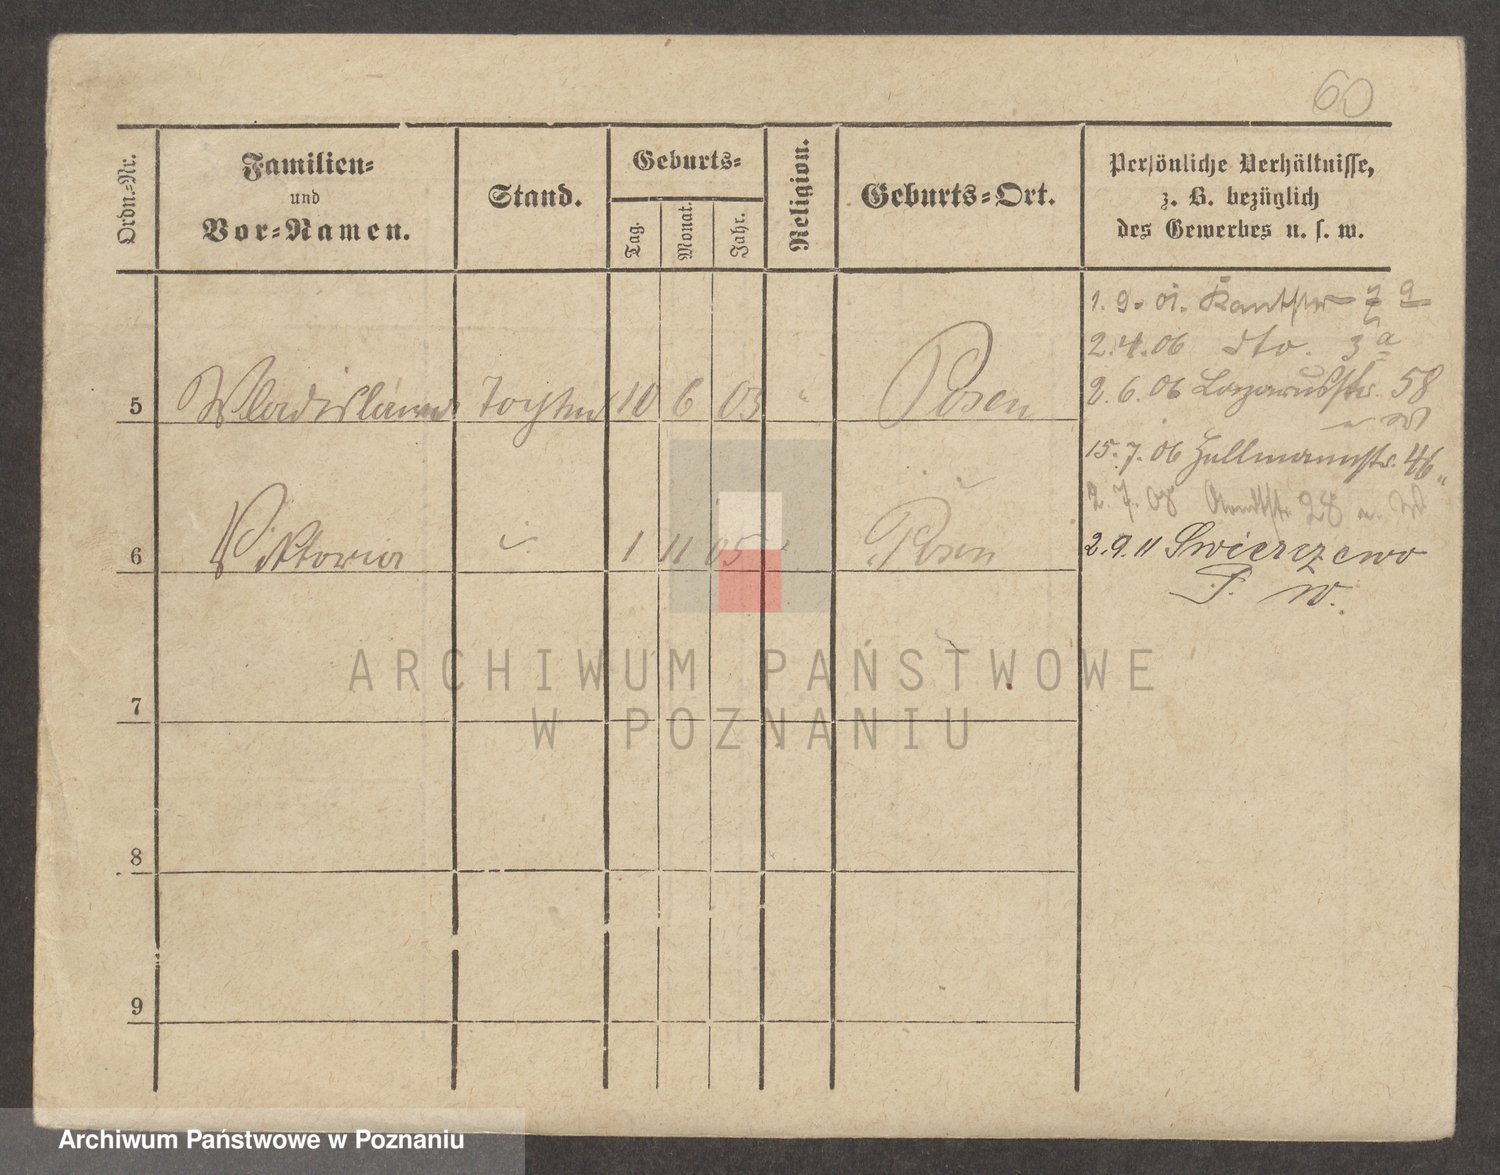 60
Ordn.-Nr.
Familien-
und
Vor-Namen.
Stand.
Geburts-
Tag.
Monat.
Jahr.
Religion.
Geburts-Ort.
Persönliche Verhältnisse,
z. B. bezüglich
des Gewerbes u. s. w.
1. 9. 01.
2. 4. 06 dto. 3a
2. 6. 06 Lazarusstr. 58
5 Wladislawa Tochter 10 6 03 " Posen
15. 7. 06 46
2. 7. 08 28
6 Viktoria 1 11 05 " Posen
2. 9. 11 Swierczewo
P. W.
7
8
9
ARCHIWUM PAŃSTWOWE
W POZNANIU
Archiwum Państwowe w Poznaniu